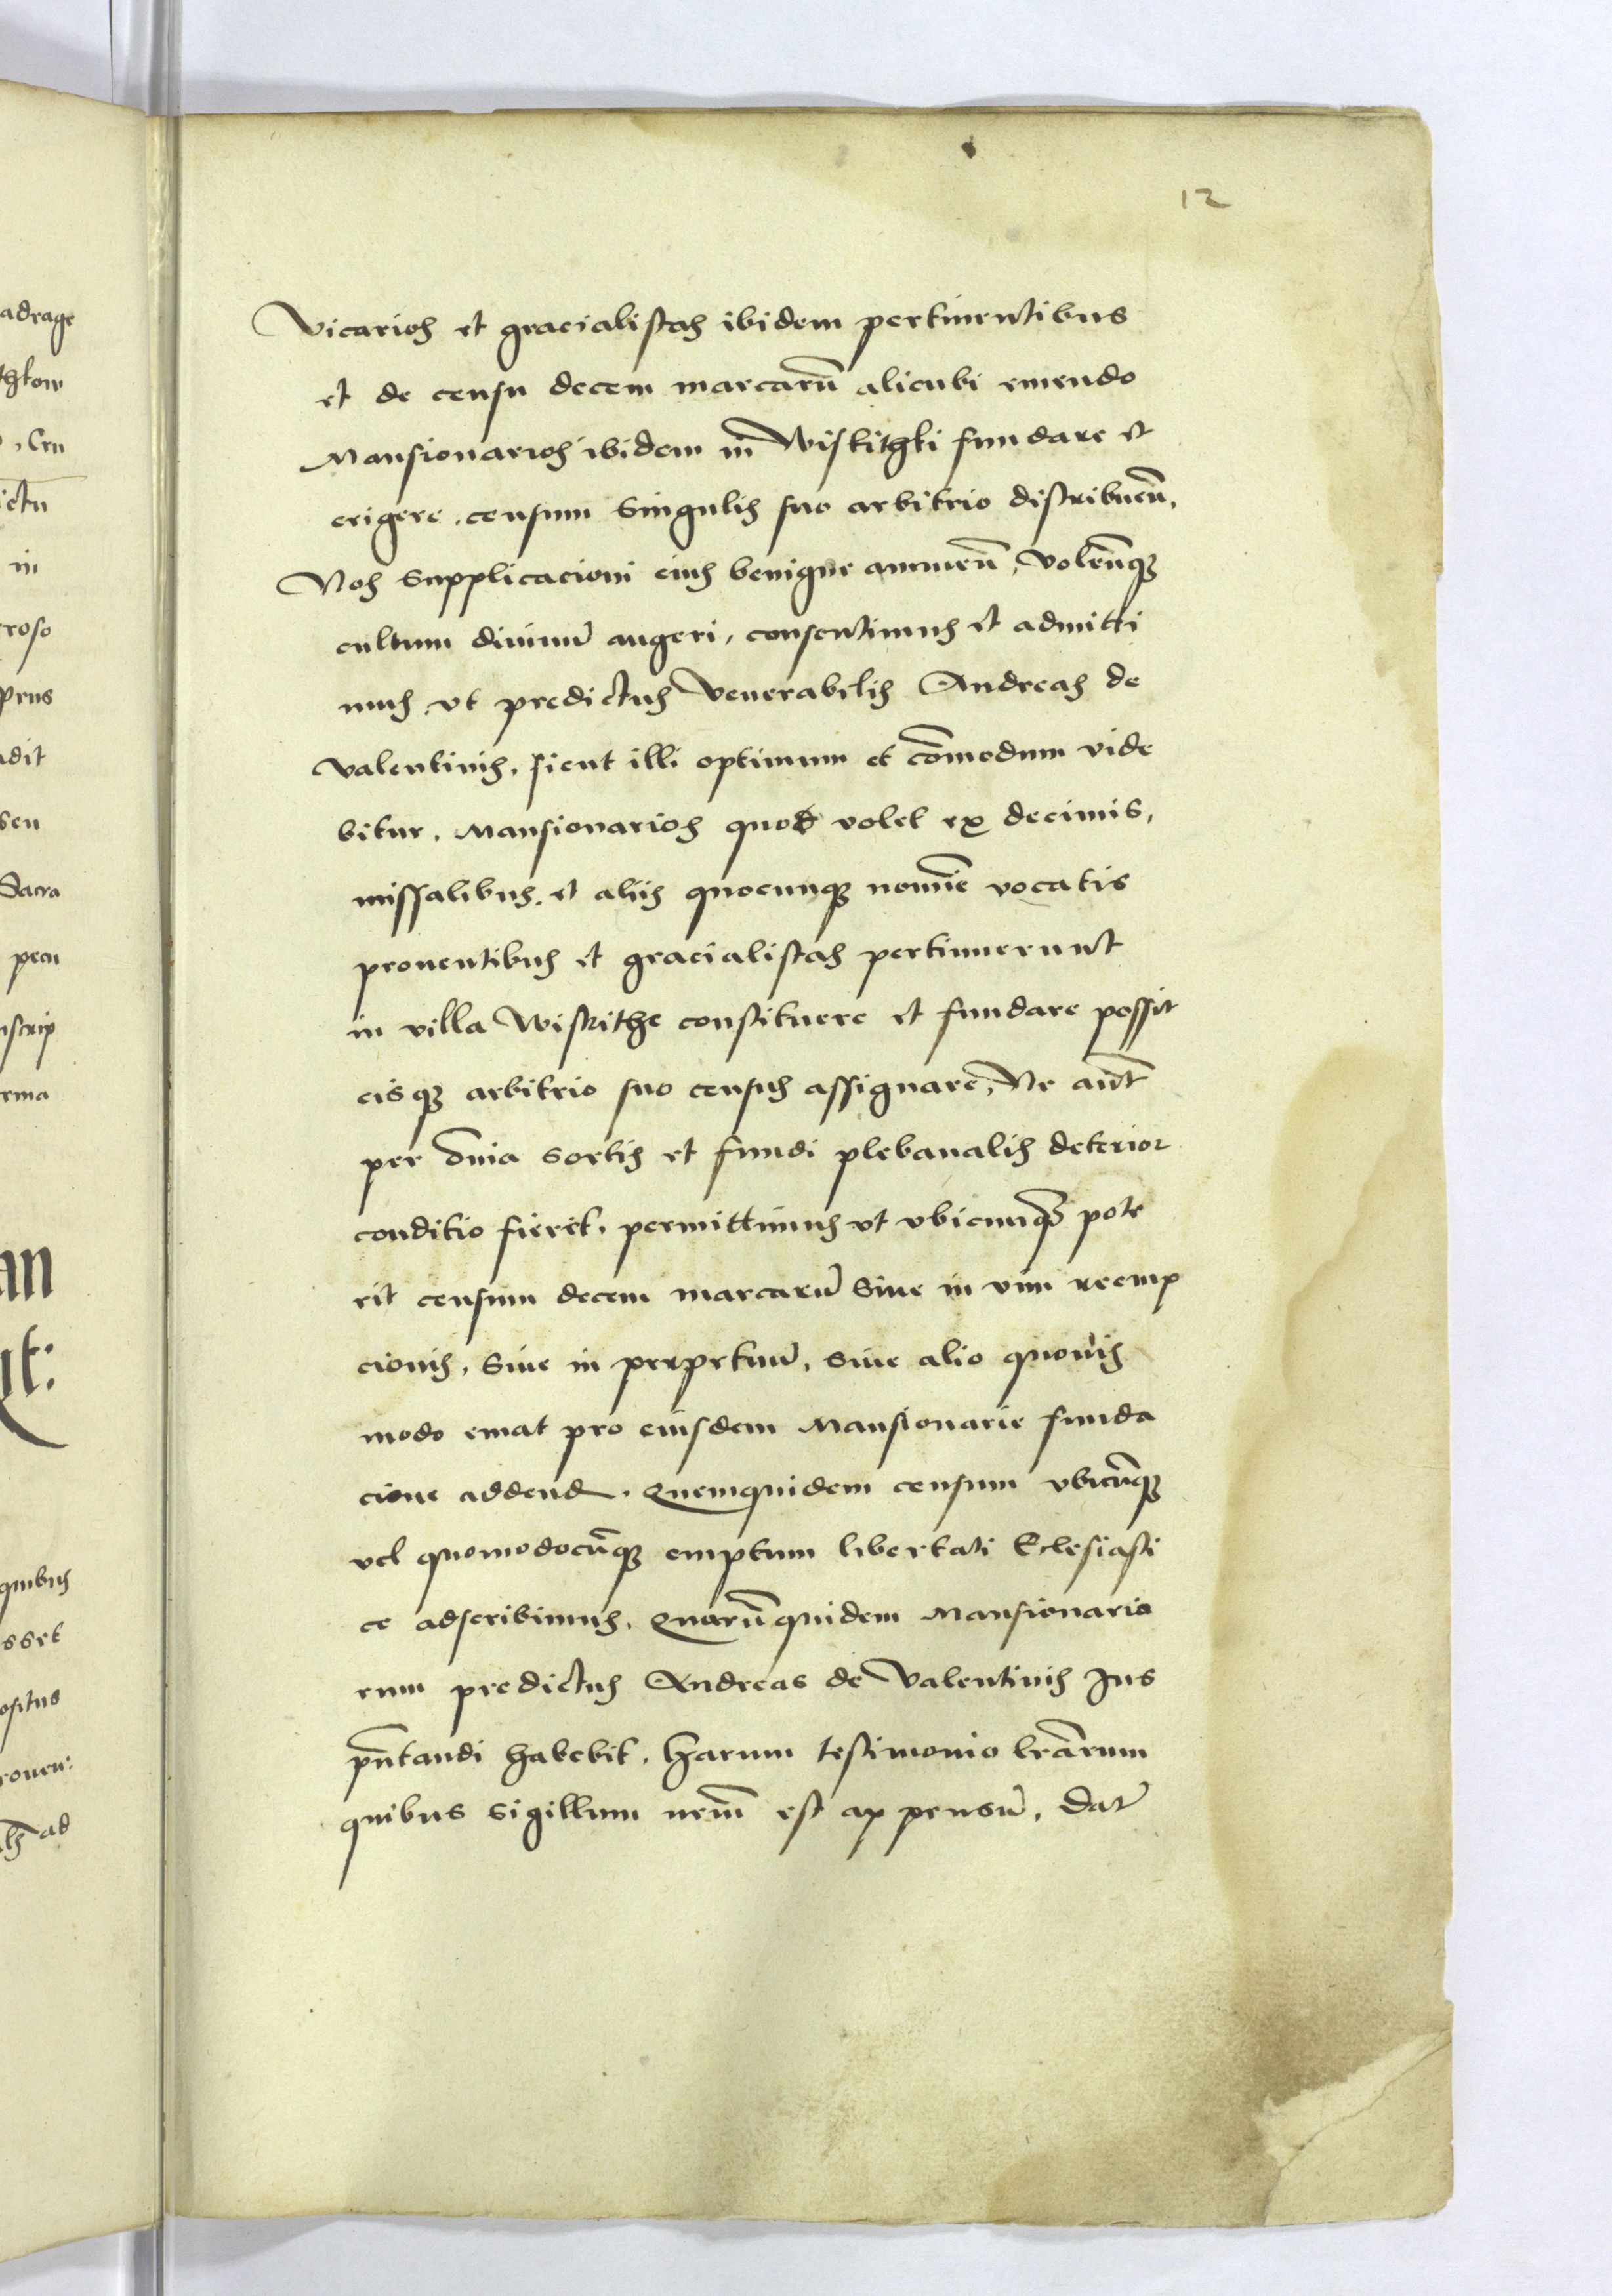 12
Vicarios et gracialistas ibidem pertinentibus
et de censu decem marcarū alicubi emendo
Mansionarios ibidem in Wiskithki fundare et
erigere, censum Singulis suo arbitrio distribuen̄,
Nos Supplicacioni eius benigne annuen̄, volen̄tq̄
cultum diuinū augeri, consentimus et admitti
mus, vt predictus Venerabilis Andreas de
Valentinis, sicut illi optimum et cōmodum vide
bitur, Mansionarios quod volet ex decimis,
missalibus, et aliis quocunq̄ nomīe vocatis
prouentibus et gracialistas pertinuerunt
in villa Wiskithe constituere et fundare possit
eisq̄ arbitrio suo census assignare, Ne aūt
per om̄ia sortis et fundi plebanalis deterior
conditio fieret, permittimus vt vbicunq̄ pote
rit censum decem marcarū Siue in vim reemp
cionis, Siue in perpetuū, siue alio quouis
modo emat pro eiusdem Mansionarie funda
cione addend. Quemquidem censum vbicūq̄
vel quomodocūq̄ emptum libertati Eclesiasti
ce adscribimus, Quarū quidem Mansionario
rum predictus Andreas de Valentinis Jus
pn̄tandi habebit, Harum testimonio lrārum
quibus Sigillum nr̄m est appensū, Dat̄
adrage
ictu
in
roso
prus
adit
seu
Sacra
pecu
nscrip
rma
quibus
sset
ositus
ad